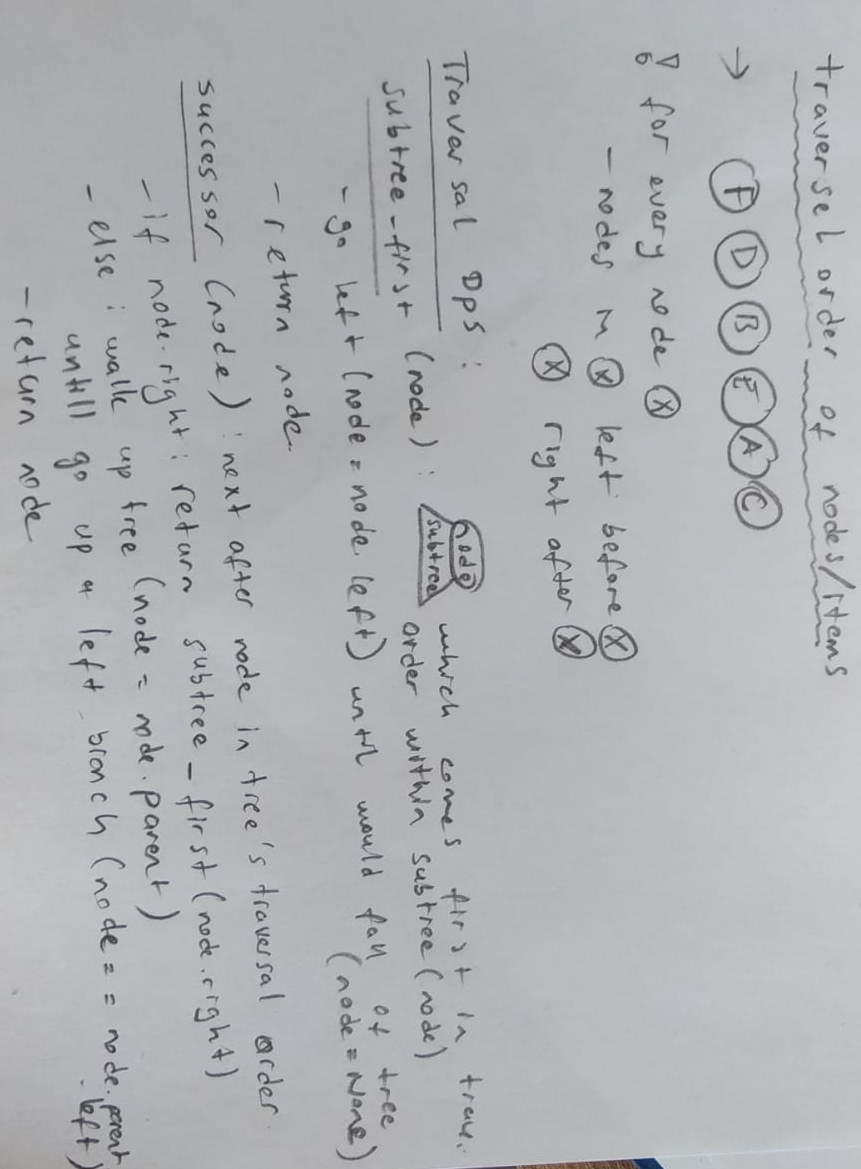 traversel order of nodes/items
→ F D B E A C
for every node X
- nodes in X left before X
X right after X
Traversal Ops :
subtree-first (node) : node subtree which comes first in trav.
order within subtree (node)
- go left (node = node left) until would fall of tree
(node = None)
- return node.
successor (node) : next after node in tree's traversal order.
- if node.right : return subtree-first (node.right)
- else : walk up tree (node = node.parent)
untill go up a left branch (node == node.parent
.left)
- return node